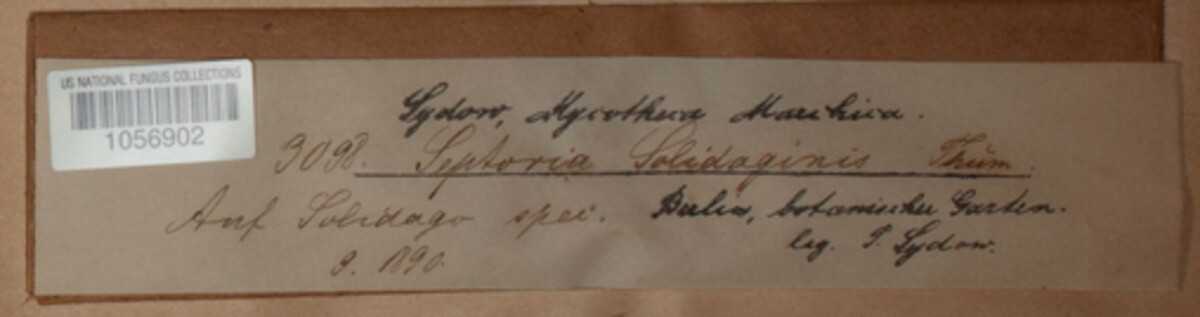 US NATIONAL FUNGUS COLLECTIONS
1056902
Sydow, Mycotheca Marchica.
3098. Septoria Solidaginis Thüm.
Auf Solidago spei. Berlin, botanischer Garten.
9. 1890. leg. P. Sydow.